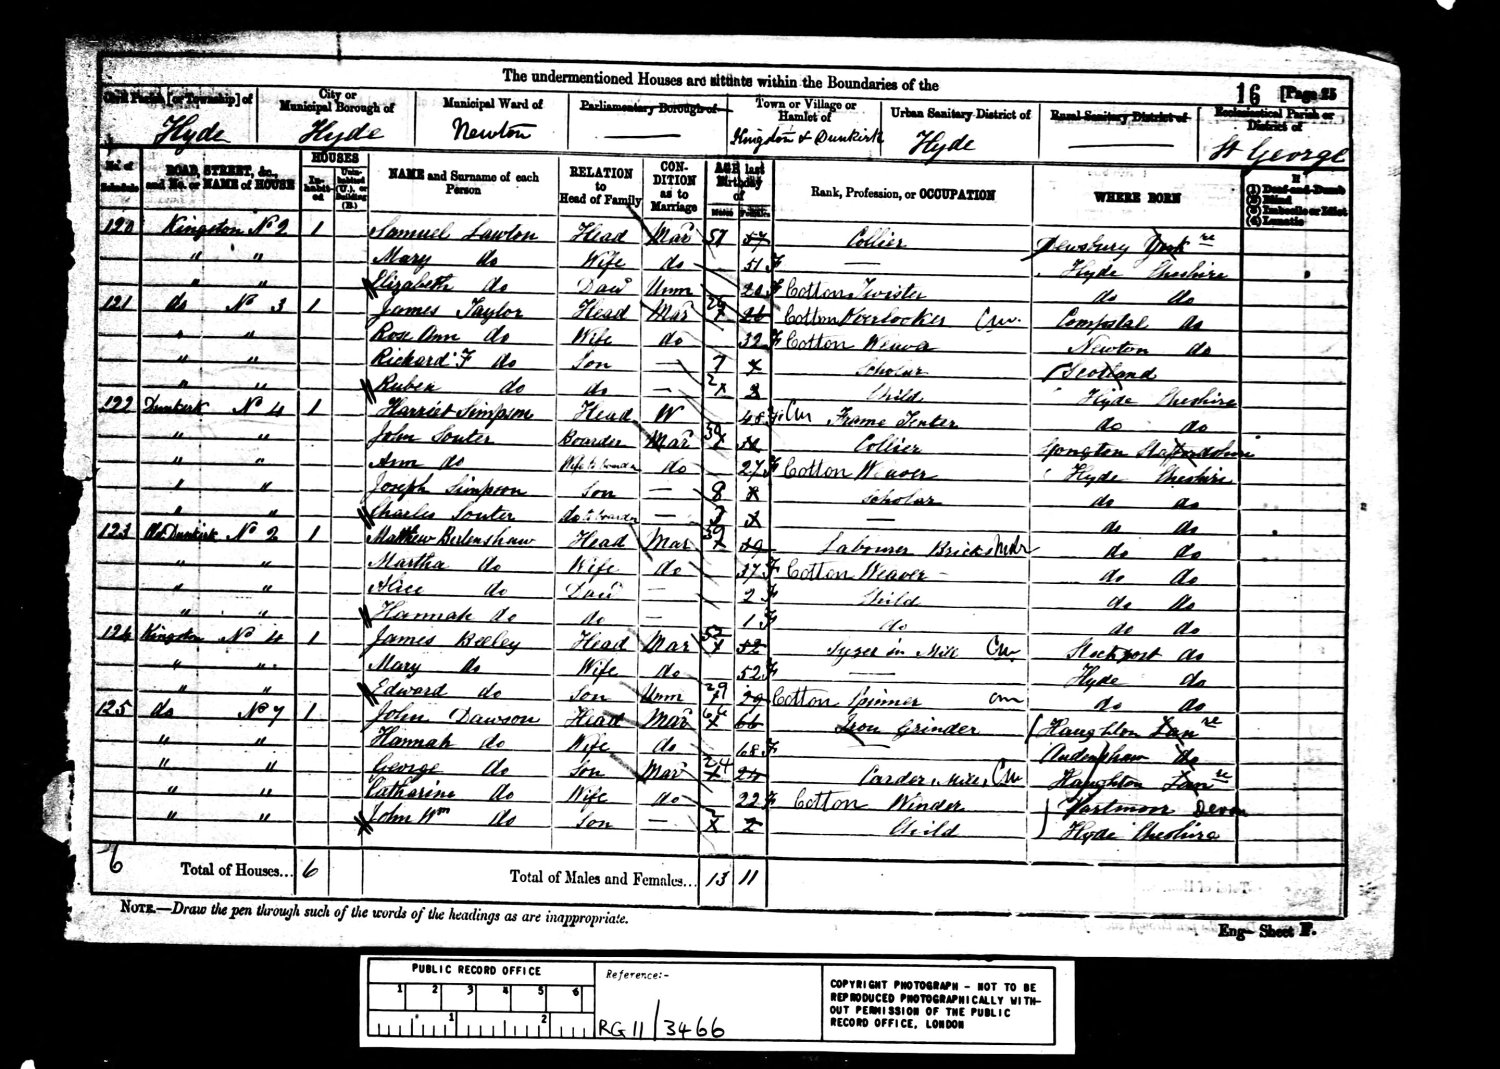 The undermentioned Houses are situate within the Boundaries of the
16 [Page 25
Civil Parish [or Township] of
City or Municipal Borough of
Municipal Ward of
Parliamentary Borough of
Town or Village or Hamlet of
Urban Sanitary District of
Rural Sanitary District of
Ecclesiastical Parish or District of
Hyde Hyde Newton — Kingston & Dunkirk Hyde — St George
No. of Schedule
ROAD, STREET, &c., and No. or NAME of HOUSE
HOUSES
In-habit-ed
Unin-habited (U.), or Building (B.)
NAME and Surname of each Person
RELATION to Head of Family
CON-DITION as to Marriage
AGE last Birthday of
Males Females
Rank, Profession, or OCCUPATION
WHERE BORN
If
(1) Deaf-and-Dumb
(2) Blind
(3) Imbecile or Idiot
(4) Lunatic
120 Kingston No 2 1 Samuel Lawton Head Mar 57 57 Collier Dewsbury York re
" " Mary do Wife do 51 F — Hyde Cheshire
" " Elizabeth do Daur Unm 20 F Cotton Twister do do
121 do No 3 1 James Taylor Head Mar 26 26 Cotton Overlooker Cm. Compstal do
" " Rose Ann do Wife do 32 F Cotton Weaver Newton do
" " Richard F do Son — 7 Scholar Scotland
" " Ruben do do — 2 2 Child Hyde Cheshire
122 Dunkirk No 4 1 Harriet Simpson Head W 48 F Cm Frame Tenter do do
" " John Souter Boarder Mar Collier Staffordshire
" " Ann do Wife to boarder do 27 F Cotton Weaver Hyde Cheshire
" " Joseph Simpson Son — 8 8 Scholar do do
" " Charles Souter do to boarder — — do do
123 Old Dunkirk No 2 1 Matthew Bertenshaw Head Mar 59 59 Labourer Bricks do do
" " Martha do Wife do 37 F Cotton Weaver do do
" " Alice do Daur — 2 F Child do do
" " Hannah do do — 1 F do do do
124 Kingston No 4 1 James Beeley Head Mar 52 52 Syzer in Mill Cm. Stockport do
" " Mary do Wife do 52 F — Hyde do
" " Edward do Son Unm 29 29 Cotton Spinner Cm do do
125 do No 7 1 John Dawson Head Mar 66 66 Iron Grinder Haughton Lan re
" " Hannah do Wife do 68 F — Audenshaw do
" " George do Son Mar 24 24 Carder, Mill, Cm Haughton Lan re
" " Catharine do Wife do 22 F Cotton Winder Dartmoor Devon
" " John Wm do Son — 2 Child Hyde Cheshire
6 Total of Houses... 6 Total of Males and Females... 13 11
NOTE.—Draw the pen through such of the words of the headings as are inappropriate.
Eng— Sheet F.
PUBLIC RECORD OFFICE
1 2 3 4 5 6
1 2
Reference:-
RG 11/3466
COPYRIGHT PHOTOGRAPH - NOT TO BE
REPRODUCED PHOTOGRAPHICALLY WITH-
OUT PERMISSION OF THE PUBLIC
RECORD OFFICE, LONDON